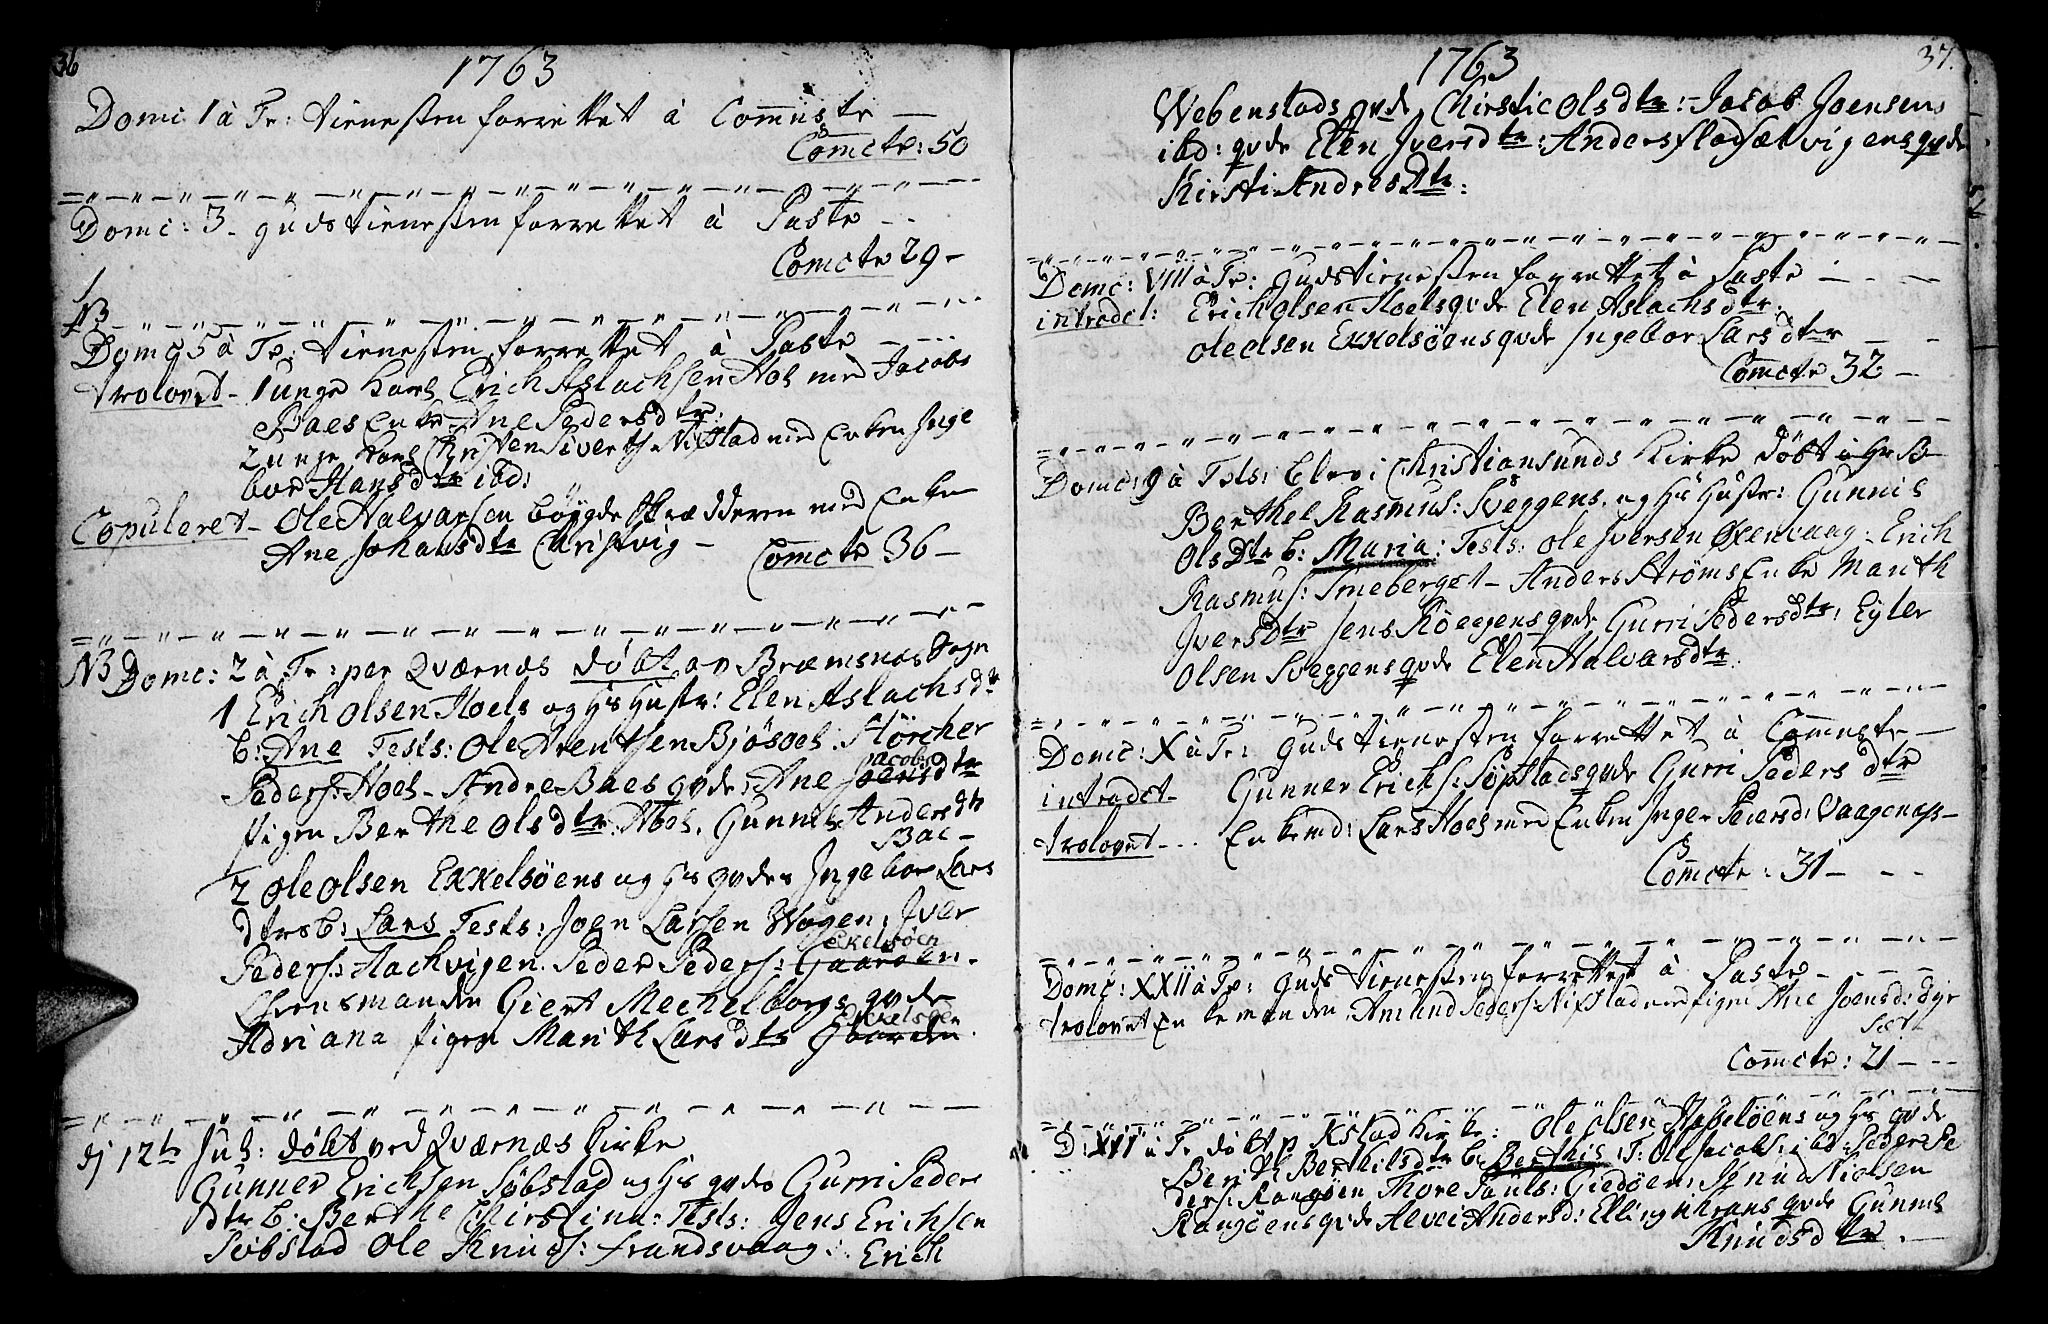 36
1763
Domc 1 à Tr: tienesten forrettet à Comusto —
Comcte: 50
Domc: 3 - gudstienesten forrettet à Pasto - -
Comcte 29 -
NB
Domc 5 à Tr: tienesten forrettet à Pasto - - -
trolovet - 1 unge karl Erich Aslachsen Hoel med Jacobs
Baes Enke Ane Pedersdtr:
2 unge karl Christen Sivertsen Nistad med Enken Inge
bor Hansdtr ibd:
Copuleret - Ole Halvarsen bøygde skrædderen med Enken
Ane Johansdtr Christvig - Comcte 36 -
NB Domc: 2 à Tr: per Qværnæs døbt av Bræmsnæs Sogn
1 Erich Olsen Hoels og Hs Hustr: Elen Aslachsdtr
b: Ane Tests: Ole Arentsen Bjøsoel. Størcher
Peders: Hoel - Andre Baes qvde: Ane Joensdtr Jacobsd
Pigen Berthe Olsdtr: Hoel. Gunnel Andersdtr
Bac -
2 Ole Olsen Ekkelsöens og Hs qvdes Ingebor Lars
dtrs b: Lars Tests: Joen Larsen Wogen, Iver
Peders: Hachvigen. Peder Peders: Gaarden. Ekelsöen
Lensmanden Giert Mechelborgs qvde
Adriana pigen Marith Larsdtr Gaarden. Ekkelsöen
dj 12te Jul: døbt ved Qværnæs Kirke
Gunner Erichsen Söbstad og Hs qvdes Gurri Peders
dtr b: Berthe Christina: Tests: Jens Erichsen
Söbstad Ole Knuds: frandsvaag: Erich
37.
1763
Webenstads qvde Chirstie Olsdtr: - Jacob Joensens
ibd: qvde Elen Iversdtr: Anders fladsætvigens qvde
Kirsti Andresdtr:
Domc: VIII à Tr: Gudstienesten forrettet à Pasto - - -
introdct: Erich Olsen Hoels qvde Elen Aslachsdtr.
Ole Olsen Ekkelsöens qvde Ingebor Larsdtr - -
Comcte 32 -
Domc: 9 à Tr: blev i Christiansunds Kirke döbt
Berthel Rasmus: Sveggens. og Hs Hustr: Gunnil
Olsdtr b: Maria: Tests: Ole Iversen Öxenvaag - Erich
Rasmus: Smeberget - Anders Ströms Enke Marith
Iversdtr Jens Röeggens qvde Gurri Pedersdtr: Eyler
Olsen Sveggens qvde Elen Halvarsdtr.
Domc: X à Tr: Gudstienesten forrettet à Comusto -
introdct - Gunner Erichs: Söpstads qvde Gurri Peders dtr
trolovet - - - Enkemd: Lars Hoel med Enken Inger Peiersd: Vaagenes -
Comcte: 31 - - -
Domc: XXII à Tr: Gudstienesten forrettet à Pasto - - - -
trolovet Enkemanden, Amund Peders: Nistad med pigen Ane Joensd: Dyr
sæt
Comcte: 21 - - -
D: XVI à Tr: döbt p. Kstad Kirke: Ole Olsen Hasselöens og Hs qvde
Berith Berthilsdtr b: Berthis: T: Ole Jacobs: ibd: Peder Pe
ders: Rangöen Thore Pauls: Giedöen: Knud Nielsen
Rangöens qvde Alvei Andersd: Elling Krans qvde Gunnil
Knudsdtr. —